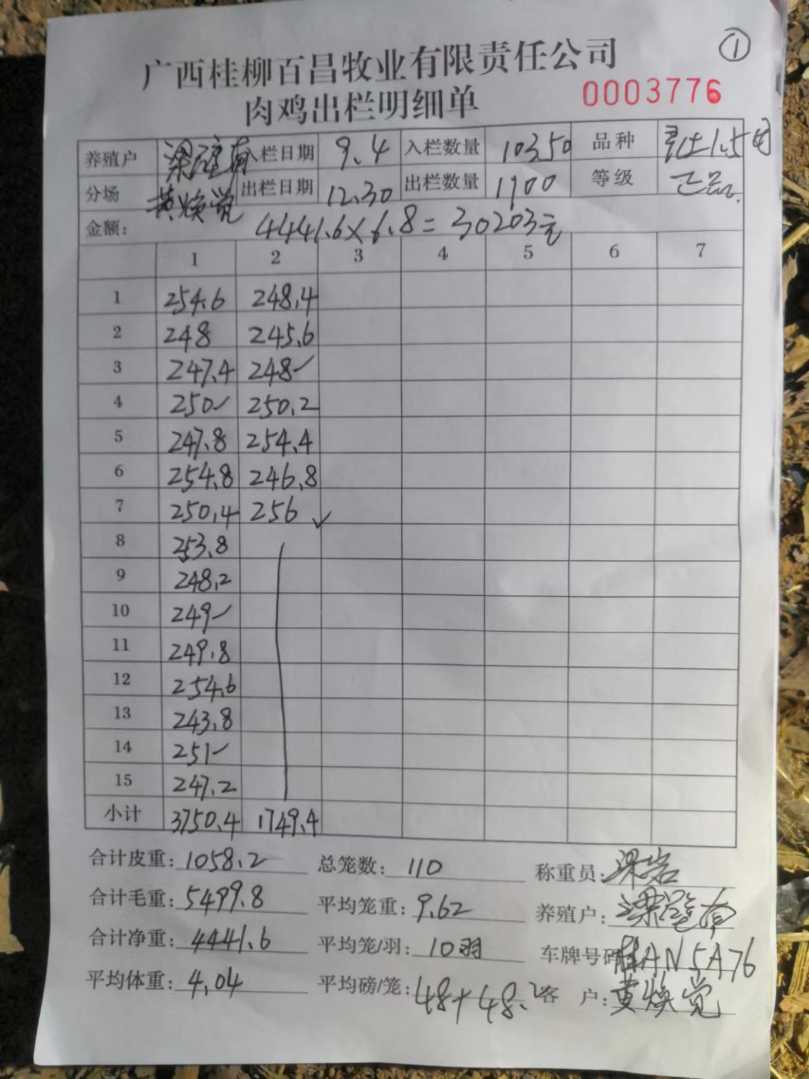 ①
广西桂柳百昌牧业有限责任公司
肉鸡出栏明细单 0003776
养殖户 入栏日期 9.4 入栏数量 10350 品种
分场 黄焕觉 出栏日期 12.30 出栏数量 1100 等级 正品.
金额: 4441.6×6.8=30203元
1 2 3 4 5 6 7
1 254.6 248.4
2 248 245.6
3 247.4 248
4 250 250.2
5 247.8 254.4
6 254.8 246.8
7 250.4 256
8 253.8
9 248.2
10 249
11 249.8
12 254.6
13 243.8
14 251
15 247.2
小计 3750.4 1749.4
合计皮重: 1058.2 总笼数: 110 称重员: 梁岩
合计毛重: 5499.8 平均笼重: 9.62 养殖户:
合计净重: 4441.6 平均笼/羽: 10羽 车牌号码: 桂AN5A76
平均体重: 4.04 平均磅/笼: 48+48.2 客户: 黄焕觉